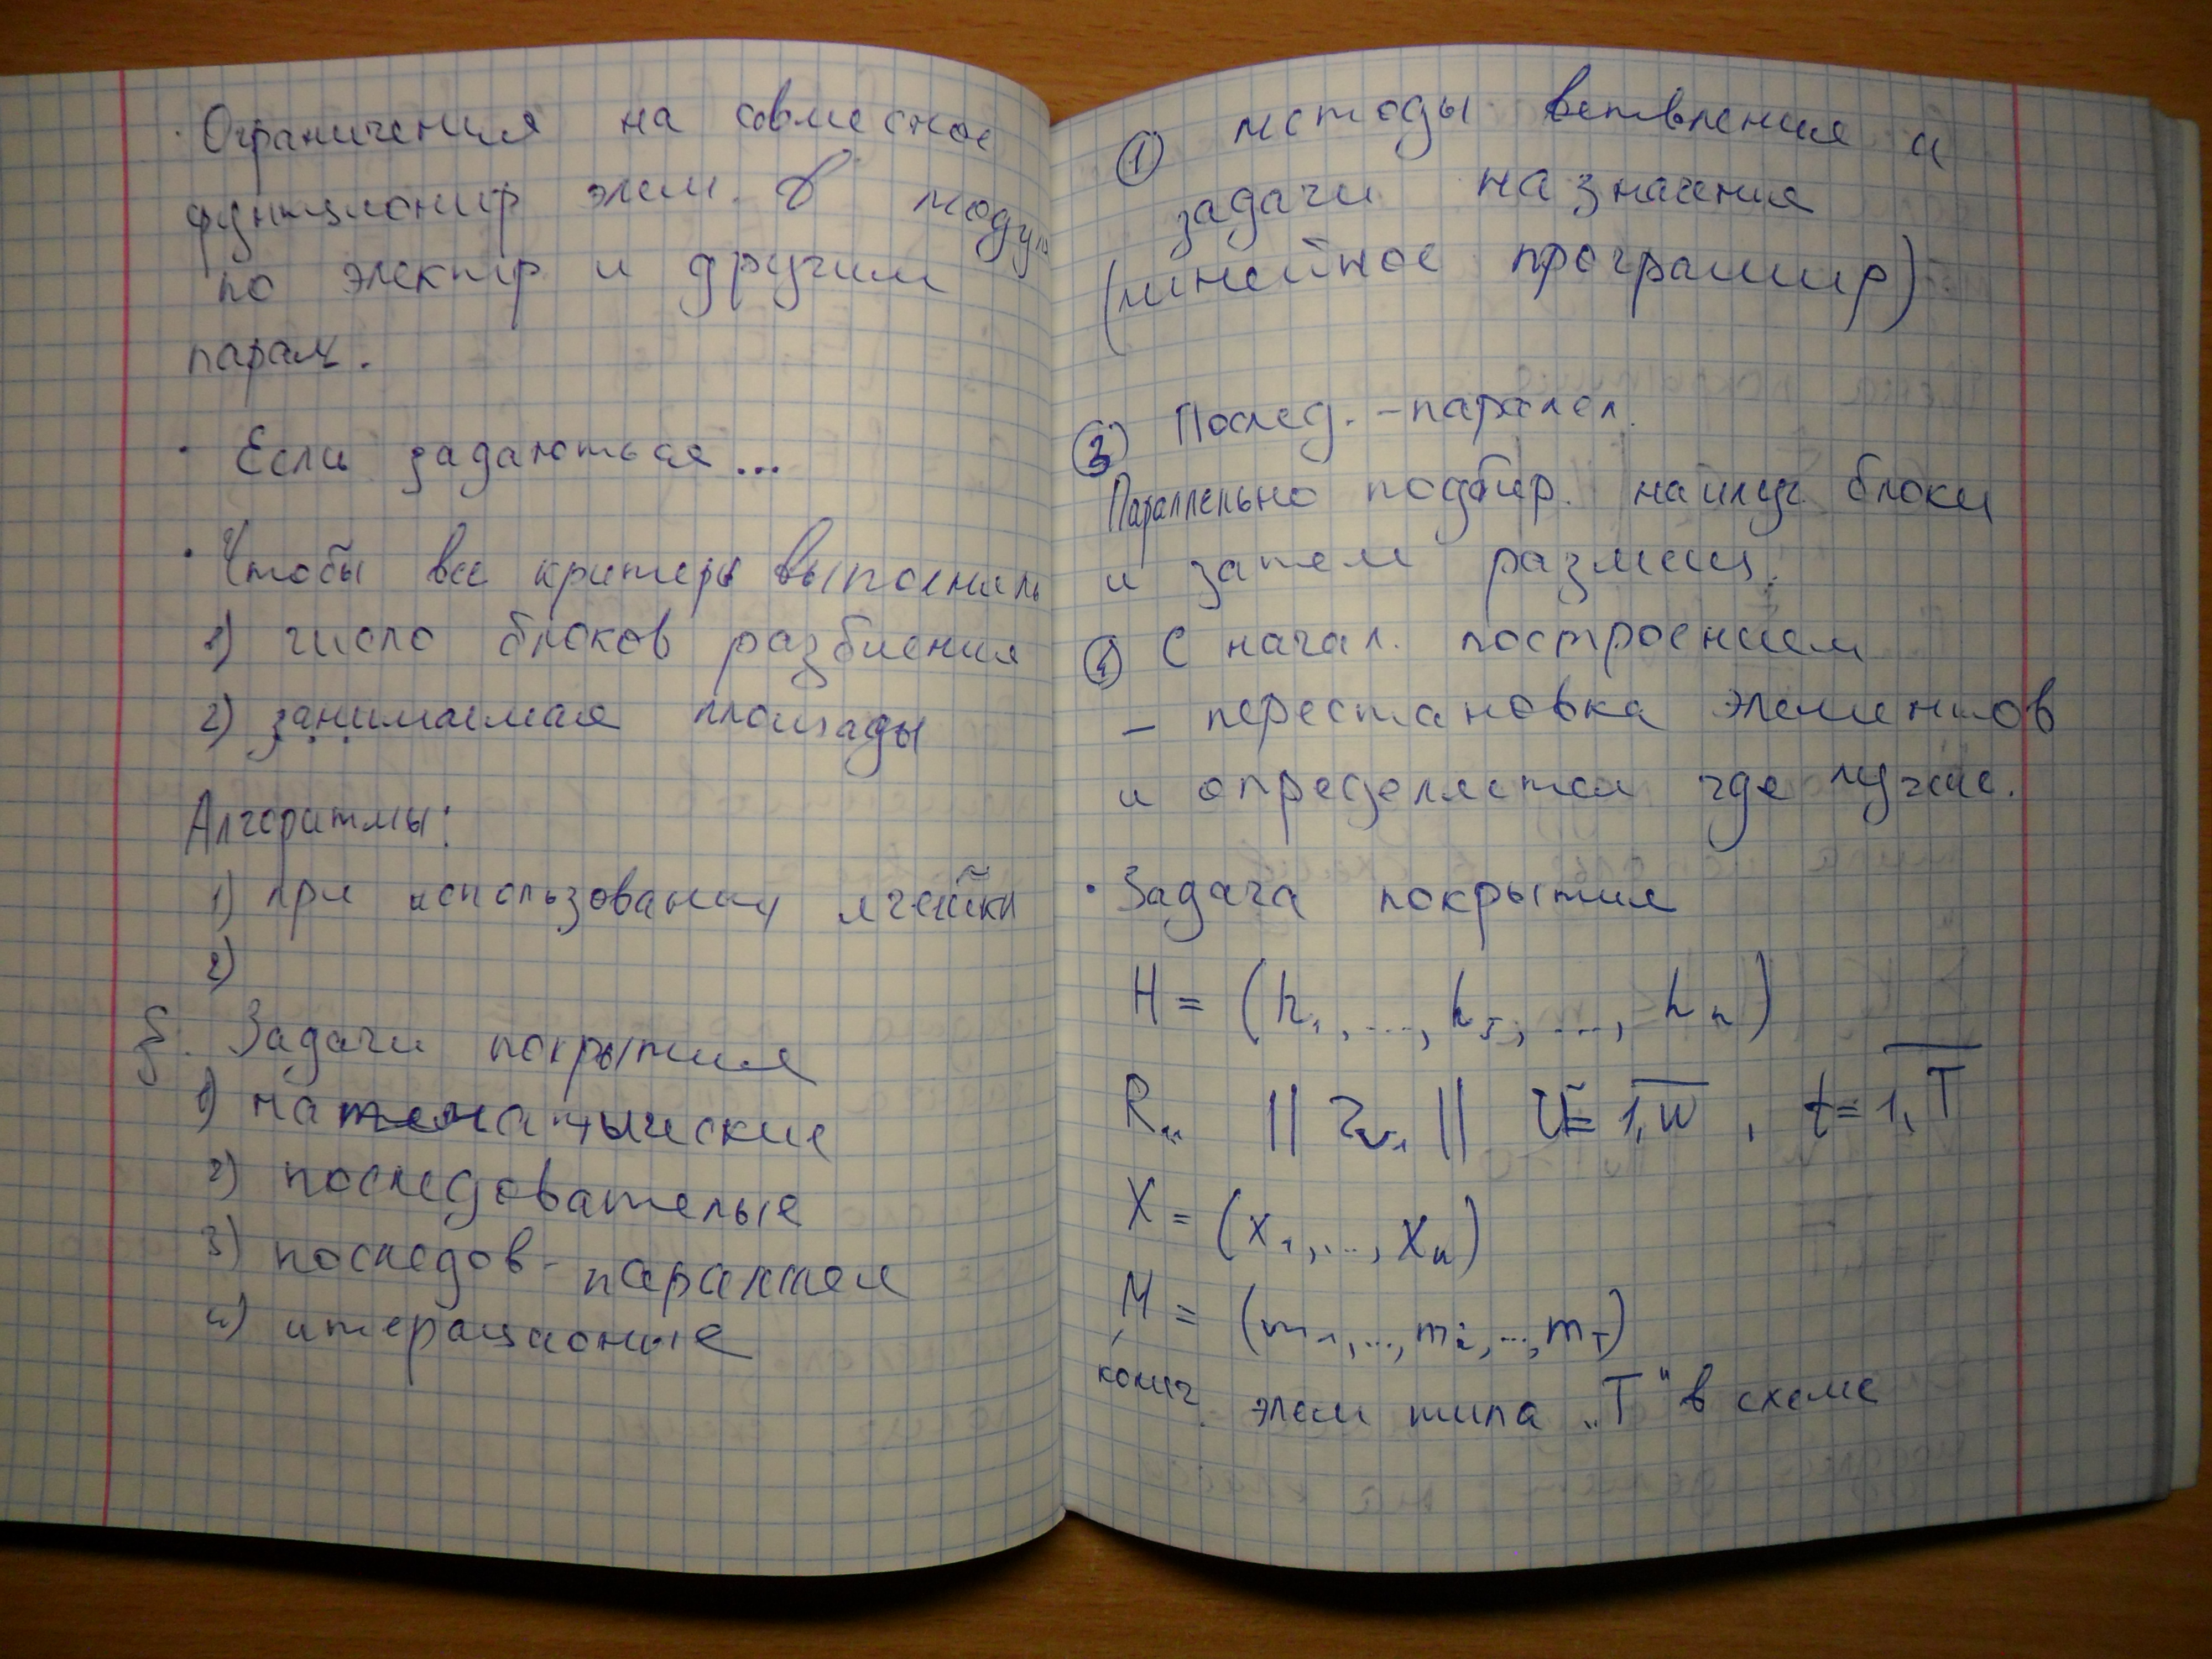 · Ограничения на совместное
функционир элем. в модул
по электр и другим
парам.
· Если задаються...
· Чтобы все критерь выполнили
1) число блоков разбиения
2) занимаемая площады
Алгоритмы:
1) при использовании ячейки
2)
§. Задачи покрытия
1) математические
2) последователые
3) последов-параллел
4) итерационые
① методы ветвления и
задачи назначения
(линейное програмир)
③ Послед.-паралел.
Параллельно подбир. наилуч блоки
и затем размещ.
④ С начал. построением
– перестановка элементов
и определяется где лучше.
· Задача покрытия
H = (h₁, ..., h_j, ..., h_n)
|| r || v = 1,W , t = 1,T
X = (x₁, ..., x_n)
M = (m₁, ..., m_i, ..., m_T)
колич. элем типа „T" в схеме